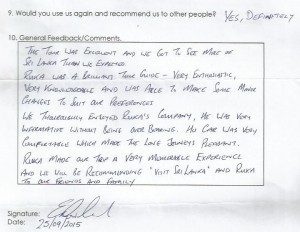 9. Would you use us again and recommend us to other people? YES, DEFINITELY
10. General Feedback/Comments.
THE TOUR WAS EXCELLENT AND WE GOT TO SEE MORE OF
SRI LANKA THAN WE EXPECTED
RUKA WAS A BRILLIANT TOUR GUIDE - VERY ENTHUSIASTIC,
VERY KNOWLEDGEABLE AND WAS ABLE TO MAKE SOME MINOR
CHANGES TO SUIT OUR PREFERENCES
WE THOROUGHLY ENJOYED RUKA'S COMPANY, HE WAS VERY
INFORMATIVE WITHOUT BEING OVER BEARING. HIS CAR WAS VERY
COMFORTABLE WHICH MADE THE LONG JOURNEYS PLEASANT.
RUKA MADE OUR TRIP A VERY MEMORABLE EXPERIENCE
AND WE WILL BE RECOMMENDING "VISIT SRI LANKA" AND RUKA
TO OUR FRIENDS AND FAMILY
Signature:
Date: 25/09/2015